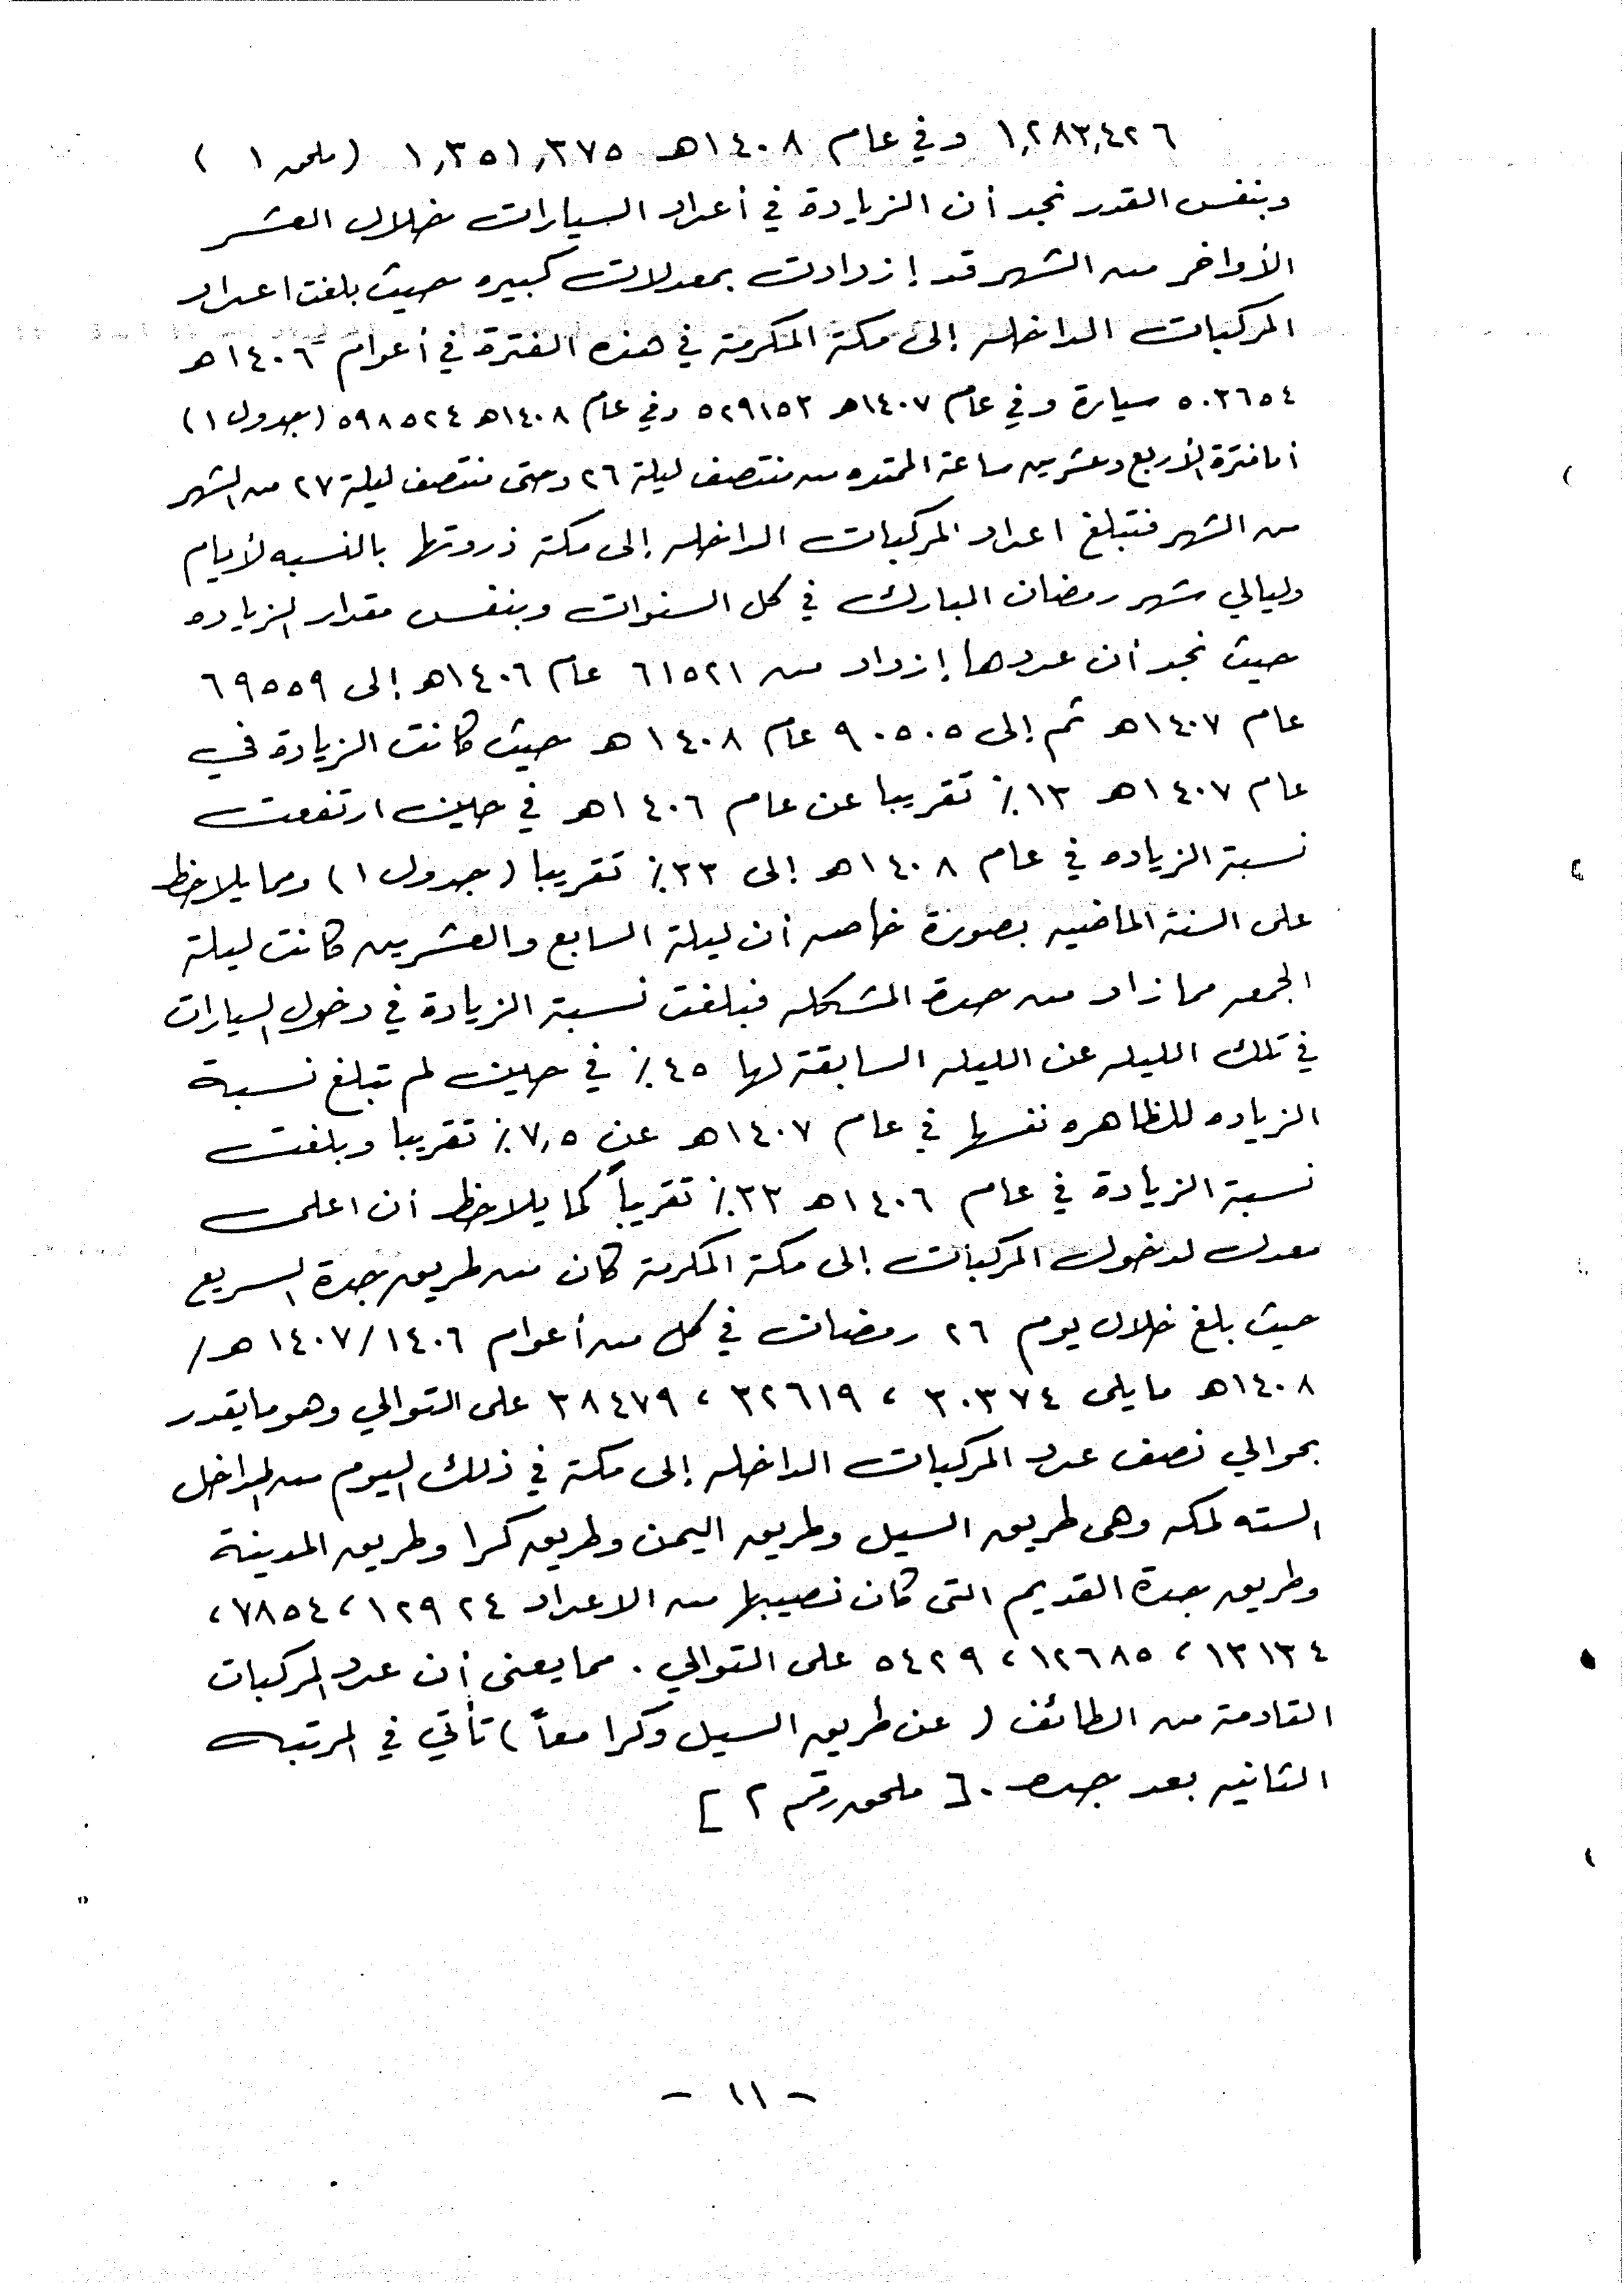 ١,٢٨٣,٤٢٦ وفي عام ١٤٠٨هـ ١,٣٥١,٣٧٥ (ملحق ١)
وبنفس القدر نجد أن الزيادة في أعداد السيارات خلال العشر
الأواخر من الشهر قد إزدادت بمعدلات كبيره حيث بلغت اعداد
المركبات الداخله إلى مكة المكرمة في هذه الفترة في أعوام ١٤٠٦هـ
٥٠٣٦٥٤ سيارة وفي عام ١٤٠٧هـ ٥٢٩١٥٣ وفي عام ١٤٠٨هـ ٥٩٨٥٢٤ (جدول ١)
أما فترة الأربع وعشرين ساعة الممتده من منتصف ليلة ٢٦ وحتى منتصف ليلة ٢٧ من الشهر
من الشهر فتبلغ اعداد المركبات الداخله إلى مكة ذروتها بالنسبه لأيام
وليالي شهر رمضان المبارك في كل السنوات وبنفس مقدار الزياده
حيث نجد أن عددها إزداد من ٦١٥٢١ عام ١٤٠٦هـ إلى ٦٩٥٥٩
عام ١٤٠٧هـ ثم إلى ٩٠٥٠٥ عام ١٤٠٨هـ حيث كانت الزيادة في
عام ١٤٠٧هـ ١٣٪ تقريبا عن عام ١٤٠٦هـ في حين ارتفعت
نسبة الزياده في عام ١٤٠٨هـ إلى ٣٣٪ تقريبا (جدول ١) ومما يلاحظ
على السنة الماضيه بصورة خاصه أن ليلة السابع والعشرين كانت ليلة
الجمعه مما زاد من حدة المشكله فبلغت نسبة الزيادة في دخول السيارات
في تلك الليله عن الليله السابقة لها ٤٥٪ في حين لم تبلغ نسبة
الزياده للظاهره نفسها في عام ١٤٠٧هـ عن ٧,٥٪ تقريبا وبلغت
نسبة الزيادة في عام ١٤٠٦هـ ٣٣٪ تقريباً كما يلاحظ أن اعلى
معدل لدخول المركبات إلى مكة المكرمة كان من طريق جدة السريع
حيث بلغ خلال يوم ٢٦ رمضان في كل من أعوام ١٤٠٧/١٤٠٦هـ/
١٤٠٨هـ مايلى ٣٠٣٧٤ ، ٣٢٦١٩ ، ٣٨٤٧٩ على التوالي وهو مايقدر
بحوالي نصف عدد المركبات الداخله إلى مكة في ذلك اليوم من المداخل
السته لمكه وهى طريق السيل وطريق اليمن وطريق كرا وطريق المدينة
وطريق جدة القديم التى كان نصيبها من الاعداد ١٢٩٢٤ ، ٧٨٥٤ ،
١٣١٣٤ ، ١٢٦٨٥ ، ٥٤٢٩ على التوالي . مما يعنى أن عدد المركبات
القادمة من الطائف ( عن طريق السيل وكرا معاً ) تأتي في المرتبه
الثانيه بعد جده . [ ملحق رقم ٢ ]
- ١١ -